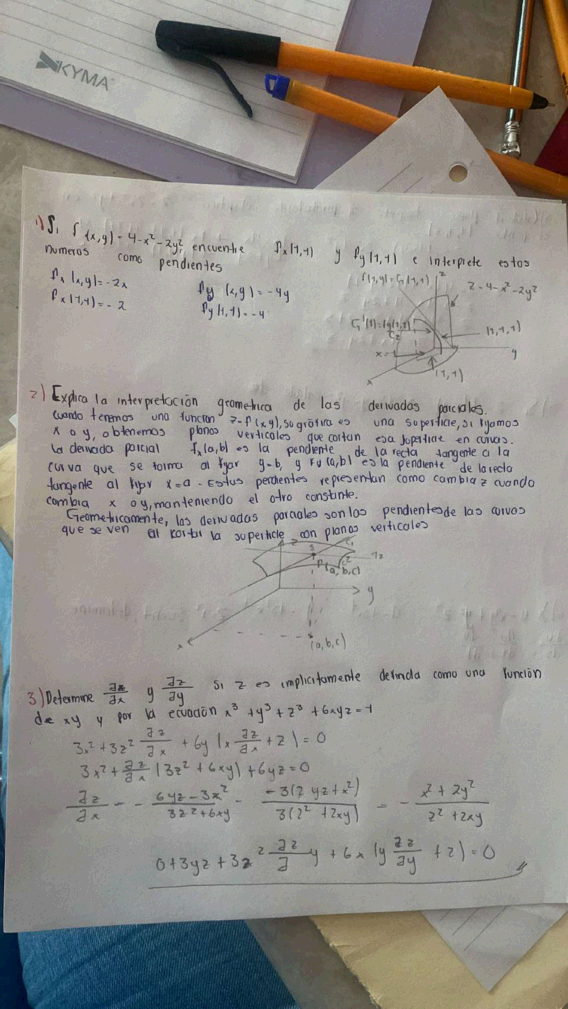 KYMA
1) Si f(x,y) = 4-x²-2y², encuentre fx(1,1) y fy(1,1) e interprete estos
números como pendientes
fx (x,y) = -2x
fy (x,y) = -4y
fx(1,1) = -2
fy(1,1) = -4
z = 4-x²-2y²
(1,1,1)
x
y
z
(1,1)
2) Explica la interpretación geometrica de las derivadas parciales.
cuando tenemos una funcion z=f(xy), su gráfica es una superficie, si fijamos
x o y, obtenemos planos verticales que cortan esa superficie en curvas.
la derivada parcial fx(a,b) es la pendiente de la recta tangente a la
curva que se forma al fijar y=b, y fy(a,b) es la pendiente de la recta
tangente al fijar x=a. Estas pendientes representan como cambia z cuando
cambia x o y, manteniendo el otro constante.
Geometricamente, las derivadas parciales son las pendientes de las curvas
que se ven al cortar la superficie con planos verticales
z
P(a,b,c)
y
x
(a,b,c)
3) Determine ∂z/∂x y ∂z/∂y si z es implicitamente definida como una función
de xy y por la ecuación x³ + y³ + z³ + 6xyz = 1
3x² + 3z² ∂z/∂x + 6y (x ∂z/∂x + z) = 0
3x² + ∂z/∂x (3z² + 6xy) + 6yz = 0
∂z/∂x = - 6yz - 3x²/3z² + 6xy - -3(2yz + x²)/3(z² + 2xy) = - x² + 2y²/z² + 2xy
0 + 3yz + 3z² ∂z/∂ y + 6x (y ∂z/∂y + z) = 0